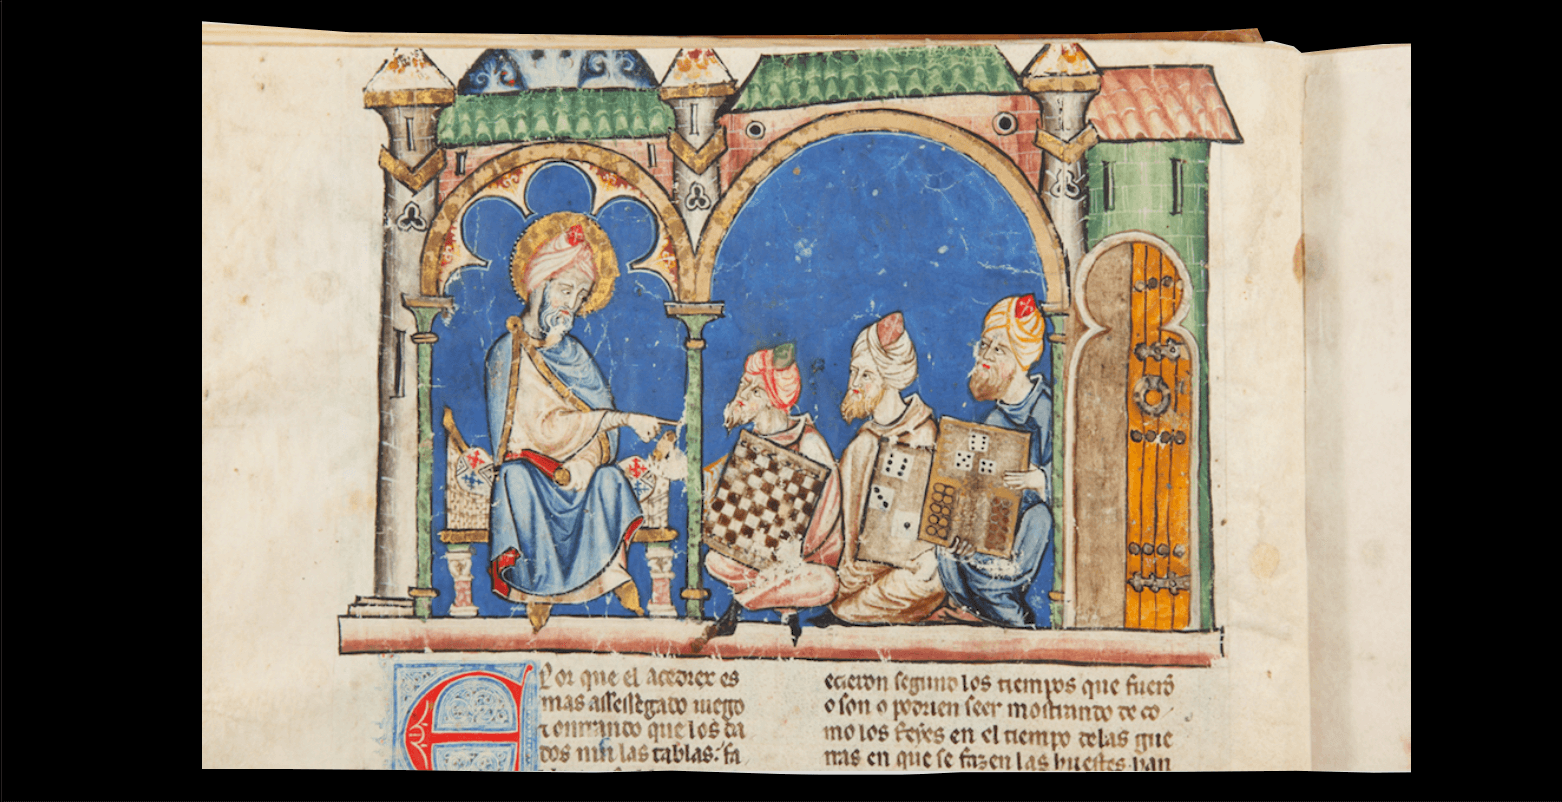 E por que el acedrex es
mas assessegado iuego
⁊ onrrado que los da
dos nin las tablas. fa
ecieron segund los tiempos que fuerõ
o son o podrien seer mostrando de co
mo los Reyes en el tiempo delas gue
rras en que se fazen las huestes. han